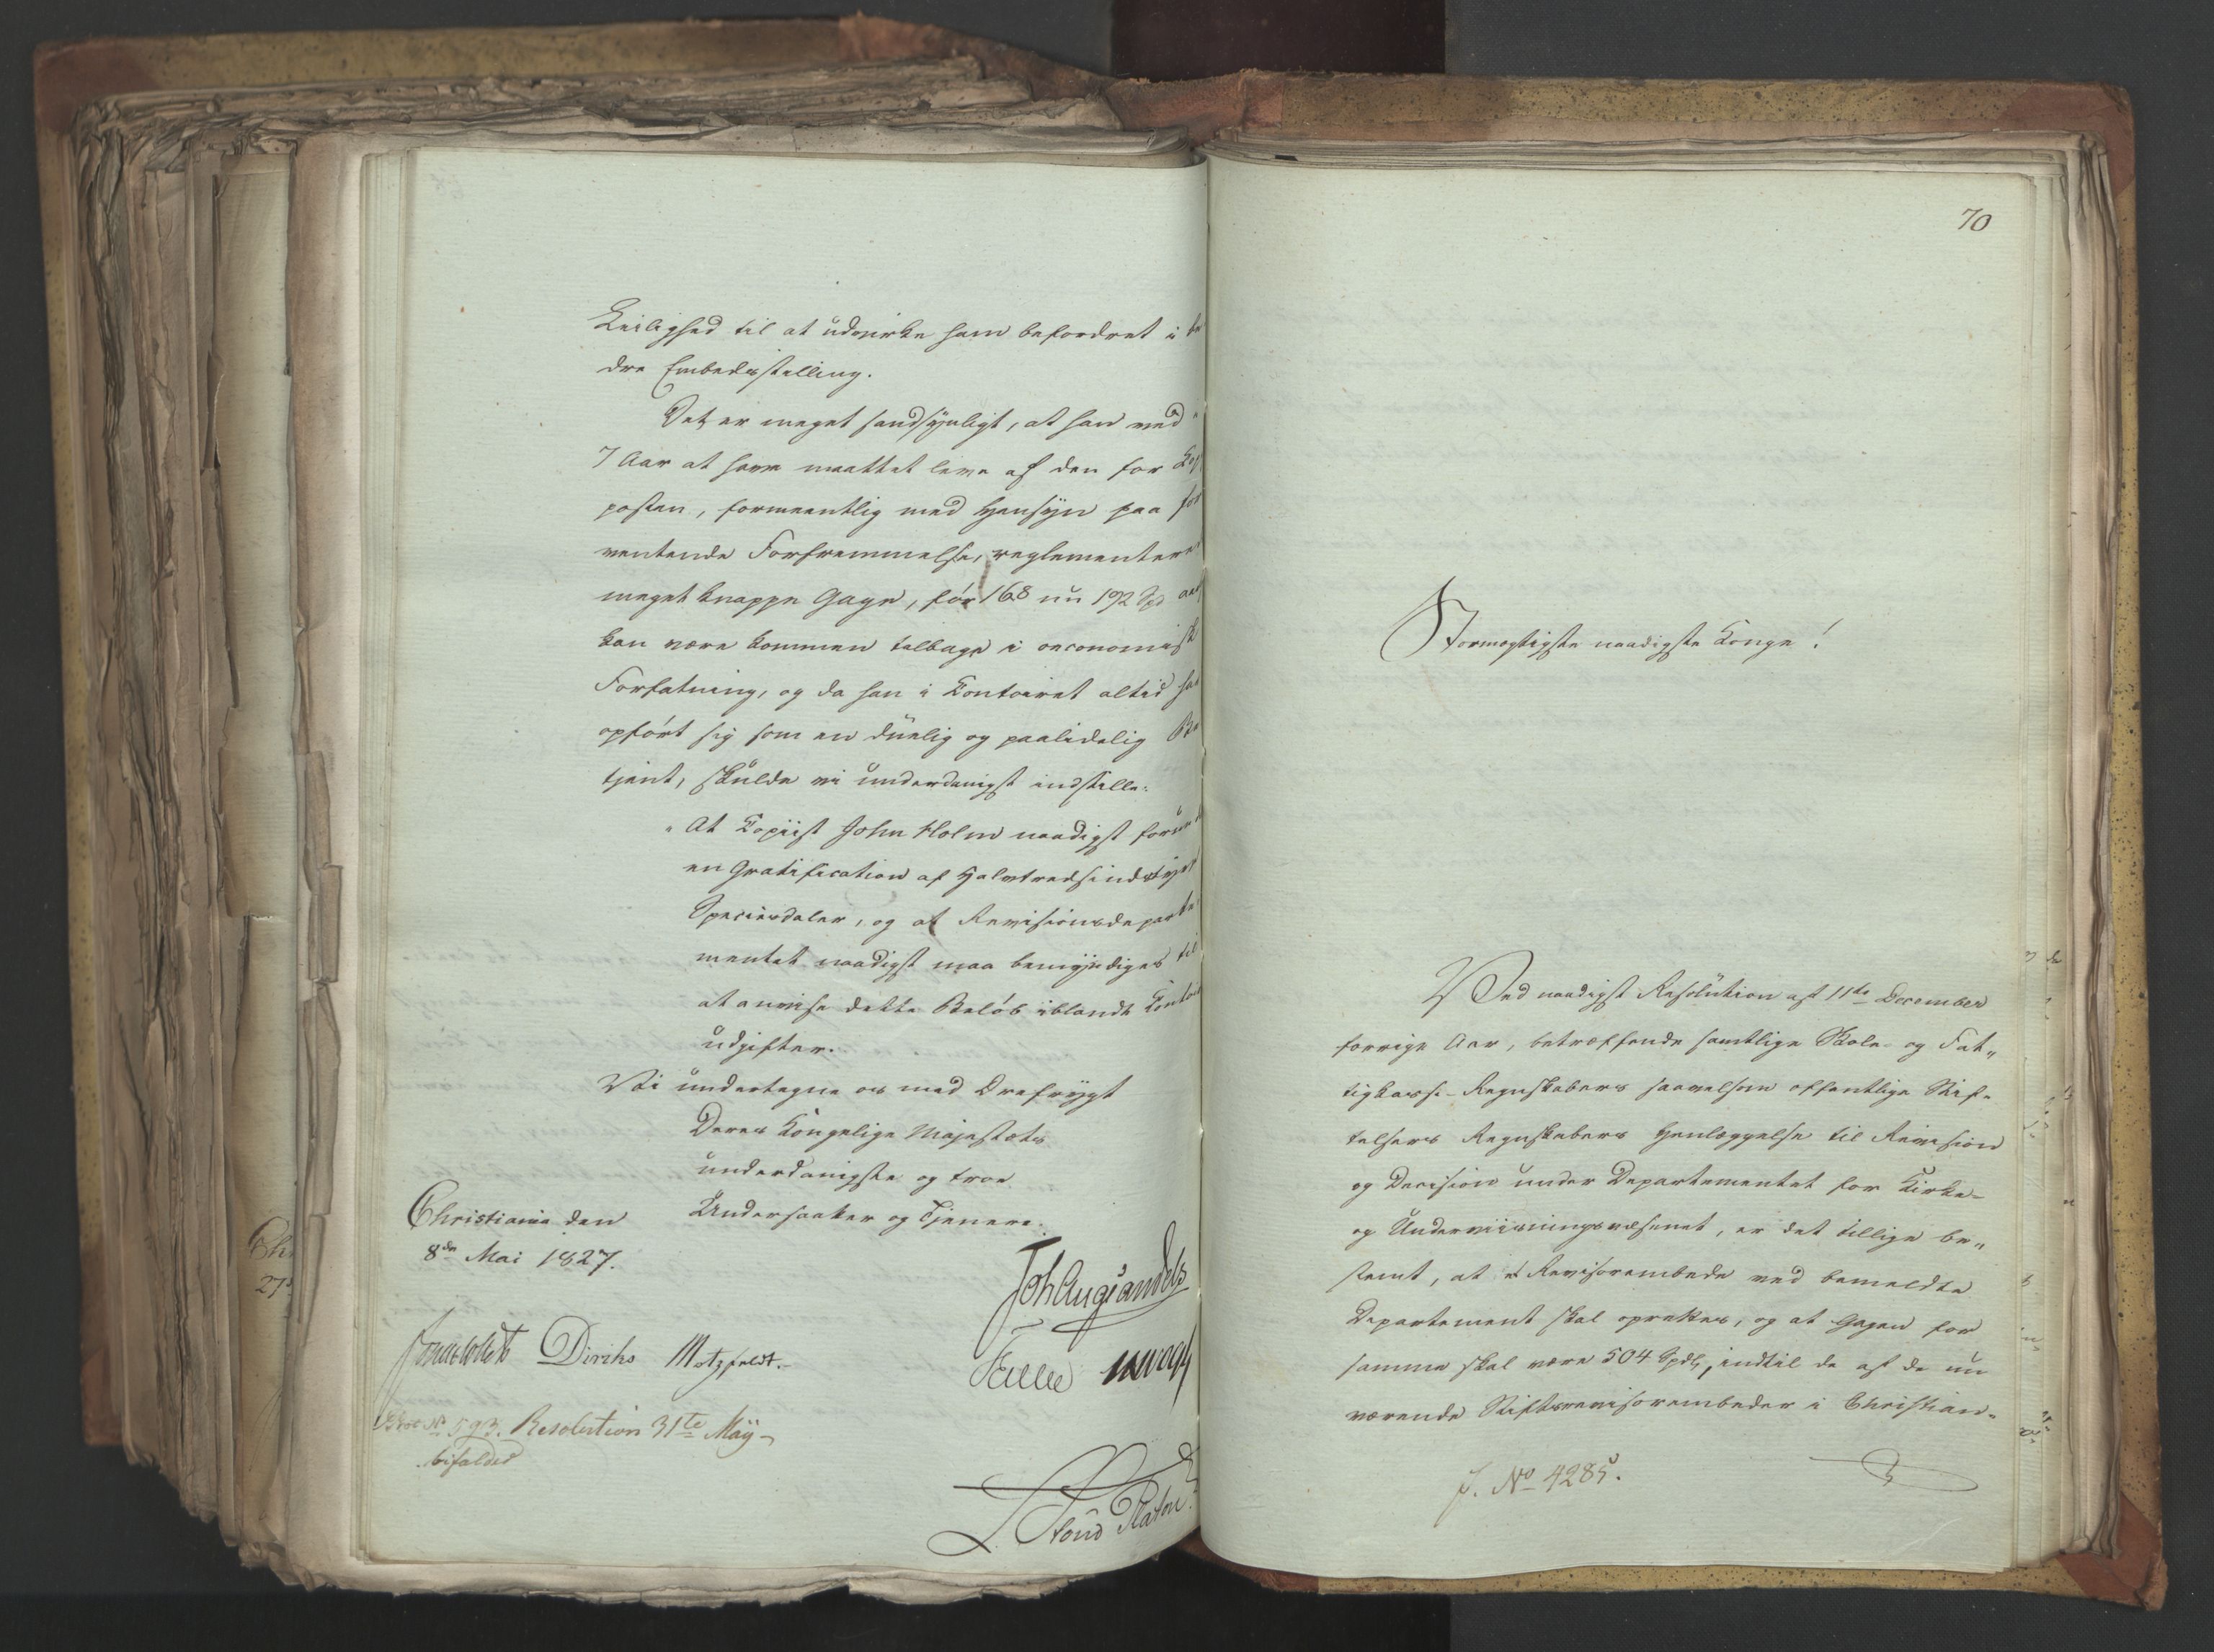 Leilighed til at udvirke ham befordret i be
dre Embedsstilling.
Det er meget sandsynligt, at han ved i
7 Aar at have maattet leve af den for Ko
posten, formeentlig med Hensyn paa for
ventende Forfremmelse, reglementere
meget knappe Gage, før 168 nu 192 Spd aar
kan være kommen tilbage i oeconomisk
Forfatning, og da han i Contoiret altid har
opført sig som en duelig og paalidelig Be
tjent, skulde vi underdanigst indstille:
"At Copiist John Holm naadigst forund
en Gratification af Halvtredsindstyve
Speciesdaler, og at Revisionsdeparte
mentet naadigst maa bemyndiges til
at anvise dette Beløb iblandt Contoir
udgifter.
Vi undertegne os med Ærefrygt
Deres Kongelige Majestæts
underdanigste og troe
Undersaatter og Tjenere.
Christiania den
8de Mai 1827.
Joh Aug Sandels
Collett Diriks Motzfeldt.
Fasting
No 593. Resolution 31te May
bifaldes
L. Stoud Platou
70
Stormægtigste naadigste Konge!
Ved naadigst Resolution af 11te December
forrige Aar, betræffende samtlige Skole- og Fat„
tigkasse-Regnskabers saavelsom offentlige Stif-
telsers Regnskabers Henlæggelse til Revision
og Decision under Departementet for Kirke-
og Underviisningsvæsenet, er det tillige be„
stemt, at et Revisorembede ved bemeldte
Departement skal oprettes, og at Gagen for
samme skal være 504 Spdlr, indtil de af de nu
værende Stiftsrevisorembeder i Christian-
J. No 4285.